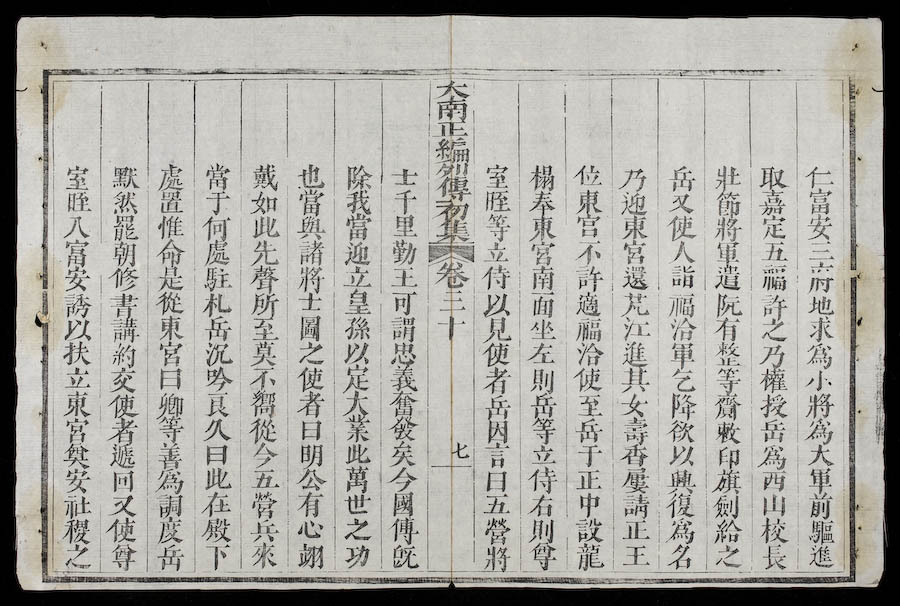 仁富安三府地求為小將為大軍前驅進
取嘉定五福許之乃權授岳為西山校長
壯節將軍遣阮有整等齎敕印旗劍給之
岳又使人詣福洽軍乞降欲以興復為名
乃迎東宮還芹江進其女壽香屢請正王
位東宮不許適福洽使至岳于正中設龍
榻奉東宮南面坐左則岳等立侍右則尊
室晊等立侍以見使者岳因言曰五營將
大南正編列傳初集 卷三十 七
士千里勤王可謂忠義奮發矣今國傅旣
除我當迎立皇孫以定大業此萬世之功
也當與諸將士圖之使者曰明公有心翊
戴如此先聲所至莫不嚮從今五營兵來
當于何處駐札岳沉吟良久曰此在殿下
處置惟命是從東宮曰卿等善為調度岳
默然罷朝修書講約交使者遞回又使尊
室晊入富安誘以扶立東宮奠安社稷之